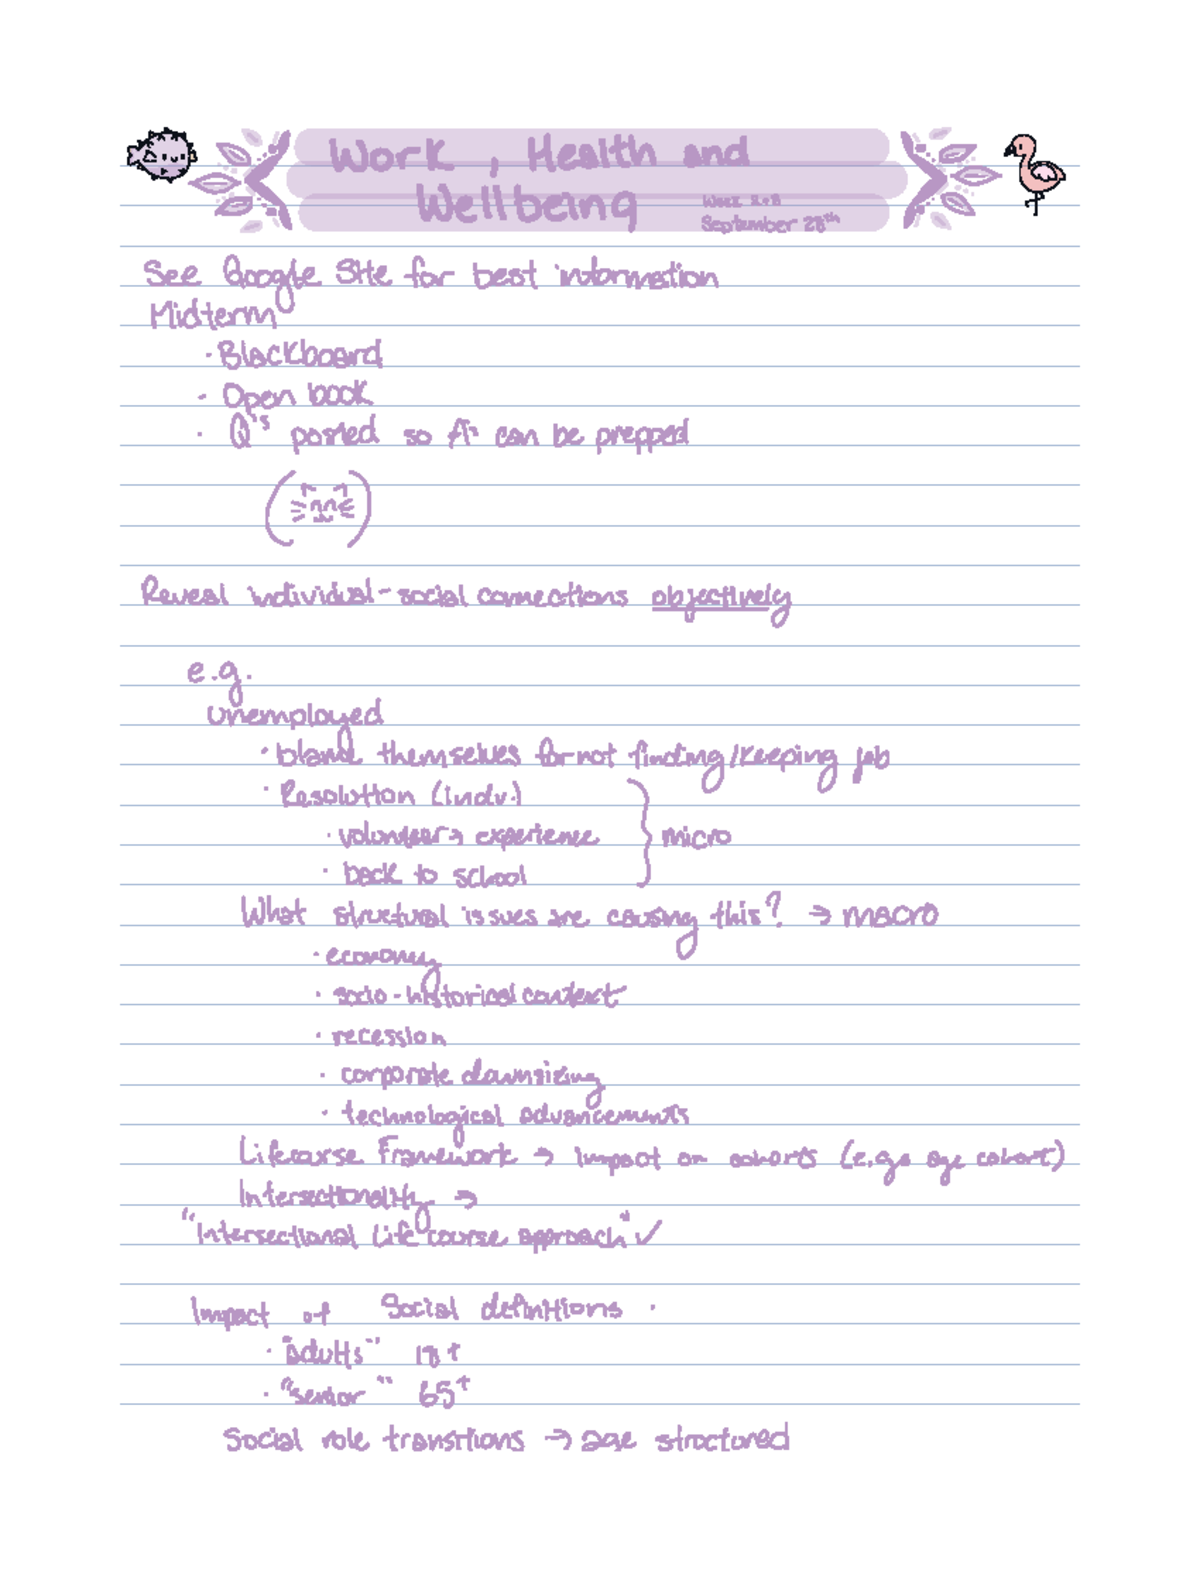 Work, Health and
Wellbeing
Week 2+3
September 28th
See Google Site for best information
Midterm
· Blackboard
· Open book
· Q's posted so A's can be prepped
Reveal individual-social connections objectively
e.g.
unemployed
· blame themselves for not finding/keeping job
· Resolution (indv.)
· volunteer → experience
micro
· back to school
What structural issues are causing this? → macro
· economy
· socio-historical context
· recession
· corporate downsizing
· technological advancements
Lifecourse Framework → impact on cohorts (e.g. age cohort)
Intersectionality →
"Intersectional Life course approach" ✓
Impact of Social definitions
· "adults" 18+
· "senior" 65+
Social role transitions → age structured